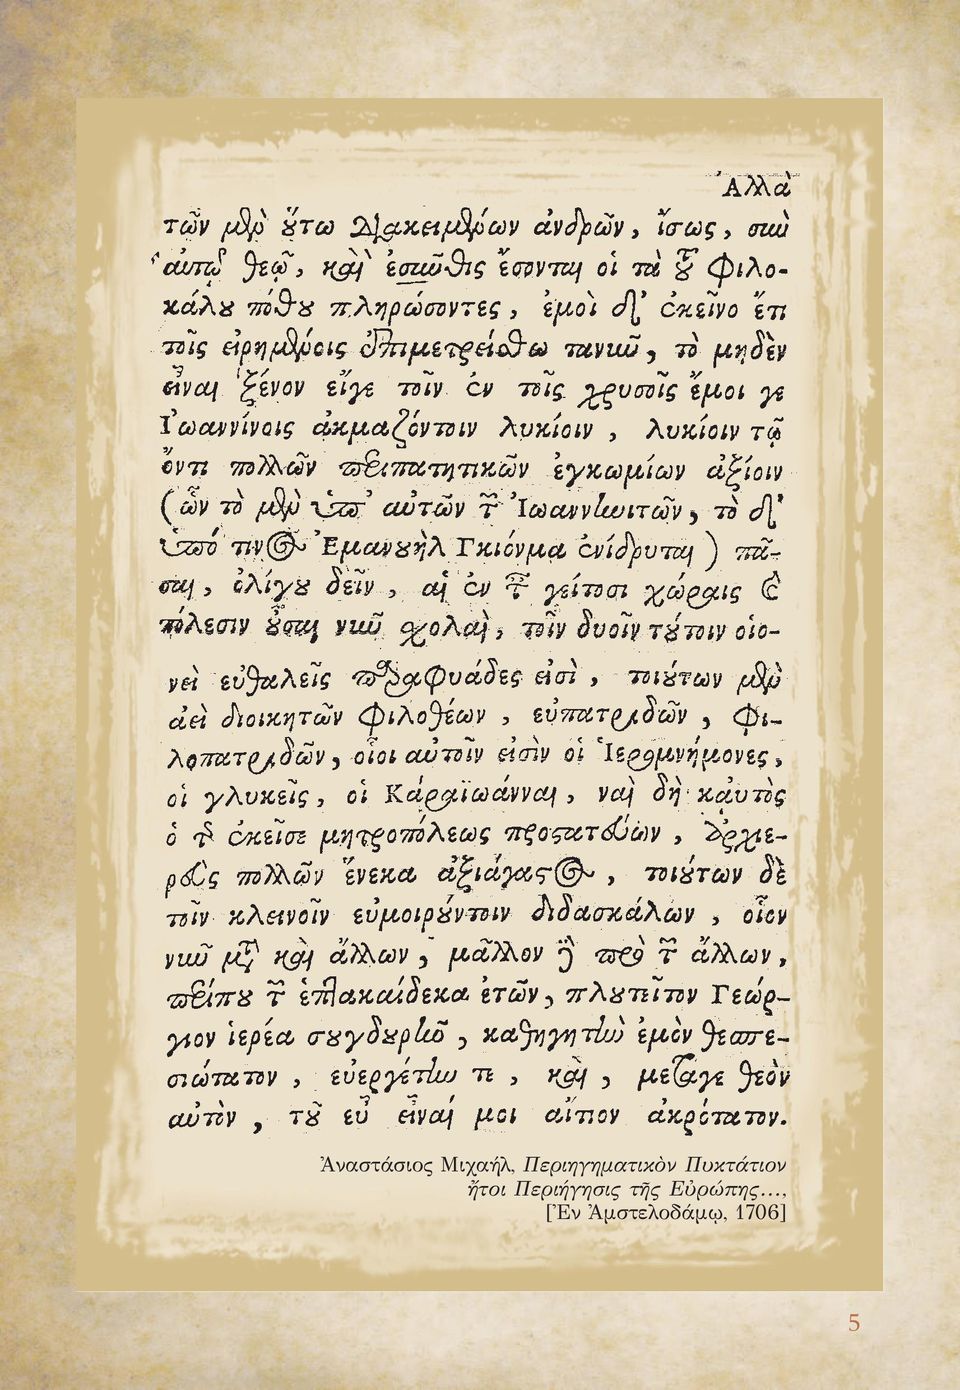 Ἀλλὰ
τῶν μὲν οὕτω διακειμένων ἀνδρῶν, ἴσως, σὺν
αὐτῷ θεῷ, καὶ ἐσαῦθις ἔσονται οἱ τὰ τοῦ Φιλο-
κάλου πόθου πληρώσοντες, ἐμοὶ δ' ἐκεῖνο ἔτι
τοῖς εἰρημένοις ἐπιμετρείσθω τανῦν, τὸ μηδὲν
εἶναι ξένον εἴγε τοῖν ἐν τοῖς χρυσοῖς ἔμοι γε
Ἰωαννίνοις ἀκμαζόντοιν λυκίοιν, λυκίοιν τῷ
ὄντι πολλῶν περιπατητικῶν ἐγκωμίων ἀξίοιν
(ὧν τὸ μὲν ὑπ' αὐτῶν τῶν Ἰωαννινιτῶν, τὸ δ'
ὑπό τινος Ἐμανουὴλ Γκιόνμα ἐνίδρυται) πᾶ-
σαι, ὀλίγου δεῖν, αἱ ἐν τοῖς γείτοσι χώραις καὶ
πόλεσιν οὖσαι νῦν σχολαὶ, τοῖν δυοῖν τούτοιν οἱο-
νεὶ εὐθαλεῖς παραφυάδες εἰσὶ, τοιούτων μὲν
ἀεὶ διοικητῶν φιλοθέων, εὐπατριδῶν, φι-
λοπατριδῶν, οἷοι αὐτοῖν εἰσὶν οἱ Ἱερομνήμονες,
οἱ γλυκεῖς, οἱ Κάραϊωάνναι, ναὶ δὴ καὐτὸς
ὁ τῆς ἐκεῖσε μητροπόλεως προστατεύων, ἀρχιε-
ρεὺς πολλῶν ἕνεκα ἀξιάγαστος, τοιούτων δὲ
τοῖν κλεινοῖν εὐμοιρούντοιν διδασκάλων, οἷον
νῦν μετὰ καὶ ἄλλων, μᾶλλον ἢ πρὸ τῶν ἄλλων,
περίπου τῶν ἑπτακαίδεκα ἐτῶν, πλουτεῖτον Γεώρ-
γιον ἱερέα σουγδουρῆν, καθηγητὴν ἐμὸν θεσπε-
σιώτατον, εὐεργέτην τε, καὶ, μετάγε θεὸν
αὐτὸν, τοῦ εὖ εἶναί μοι αἴτιον ἀκρότατον.
Ἀναστάσιος Μιχαήλ, Περιηγηματικὸν Πυκτάτιον
ἤτοι Περιήγησις τῆς Εὐρώπης…,
[Ἐν Ἀμστελοδάμῳ, 1706]
5